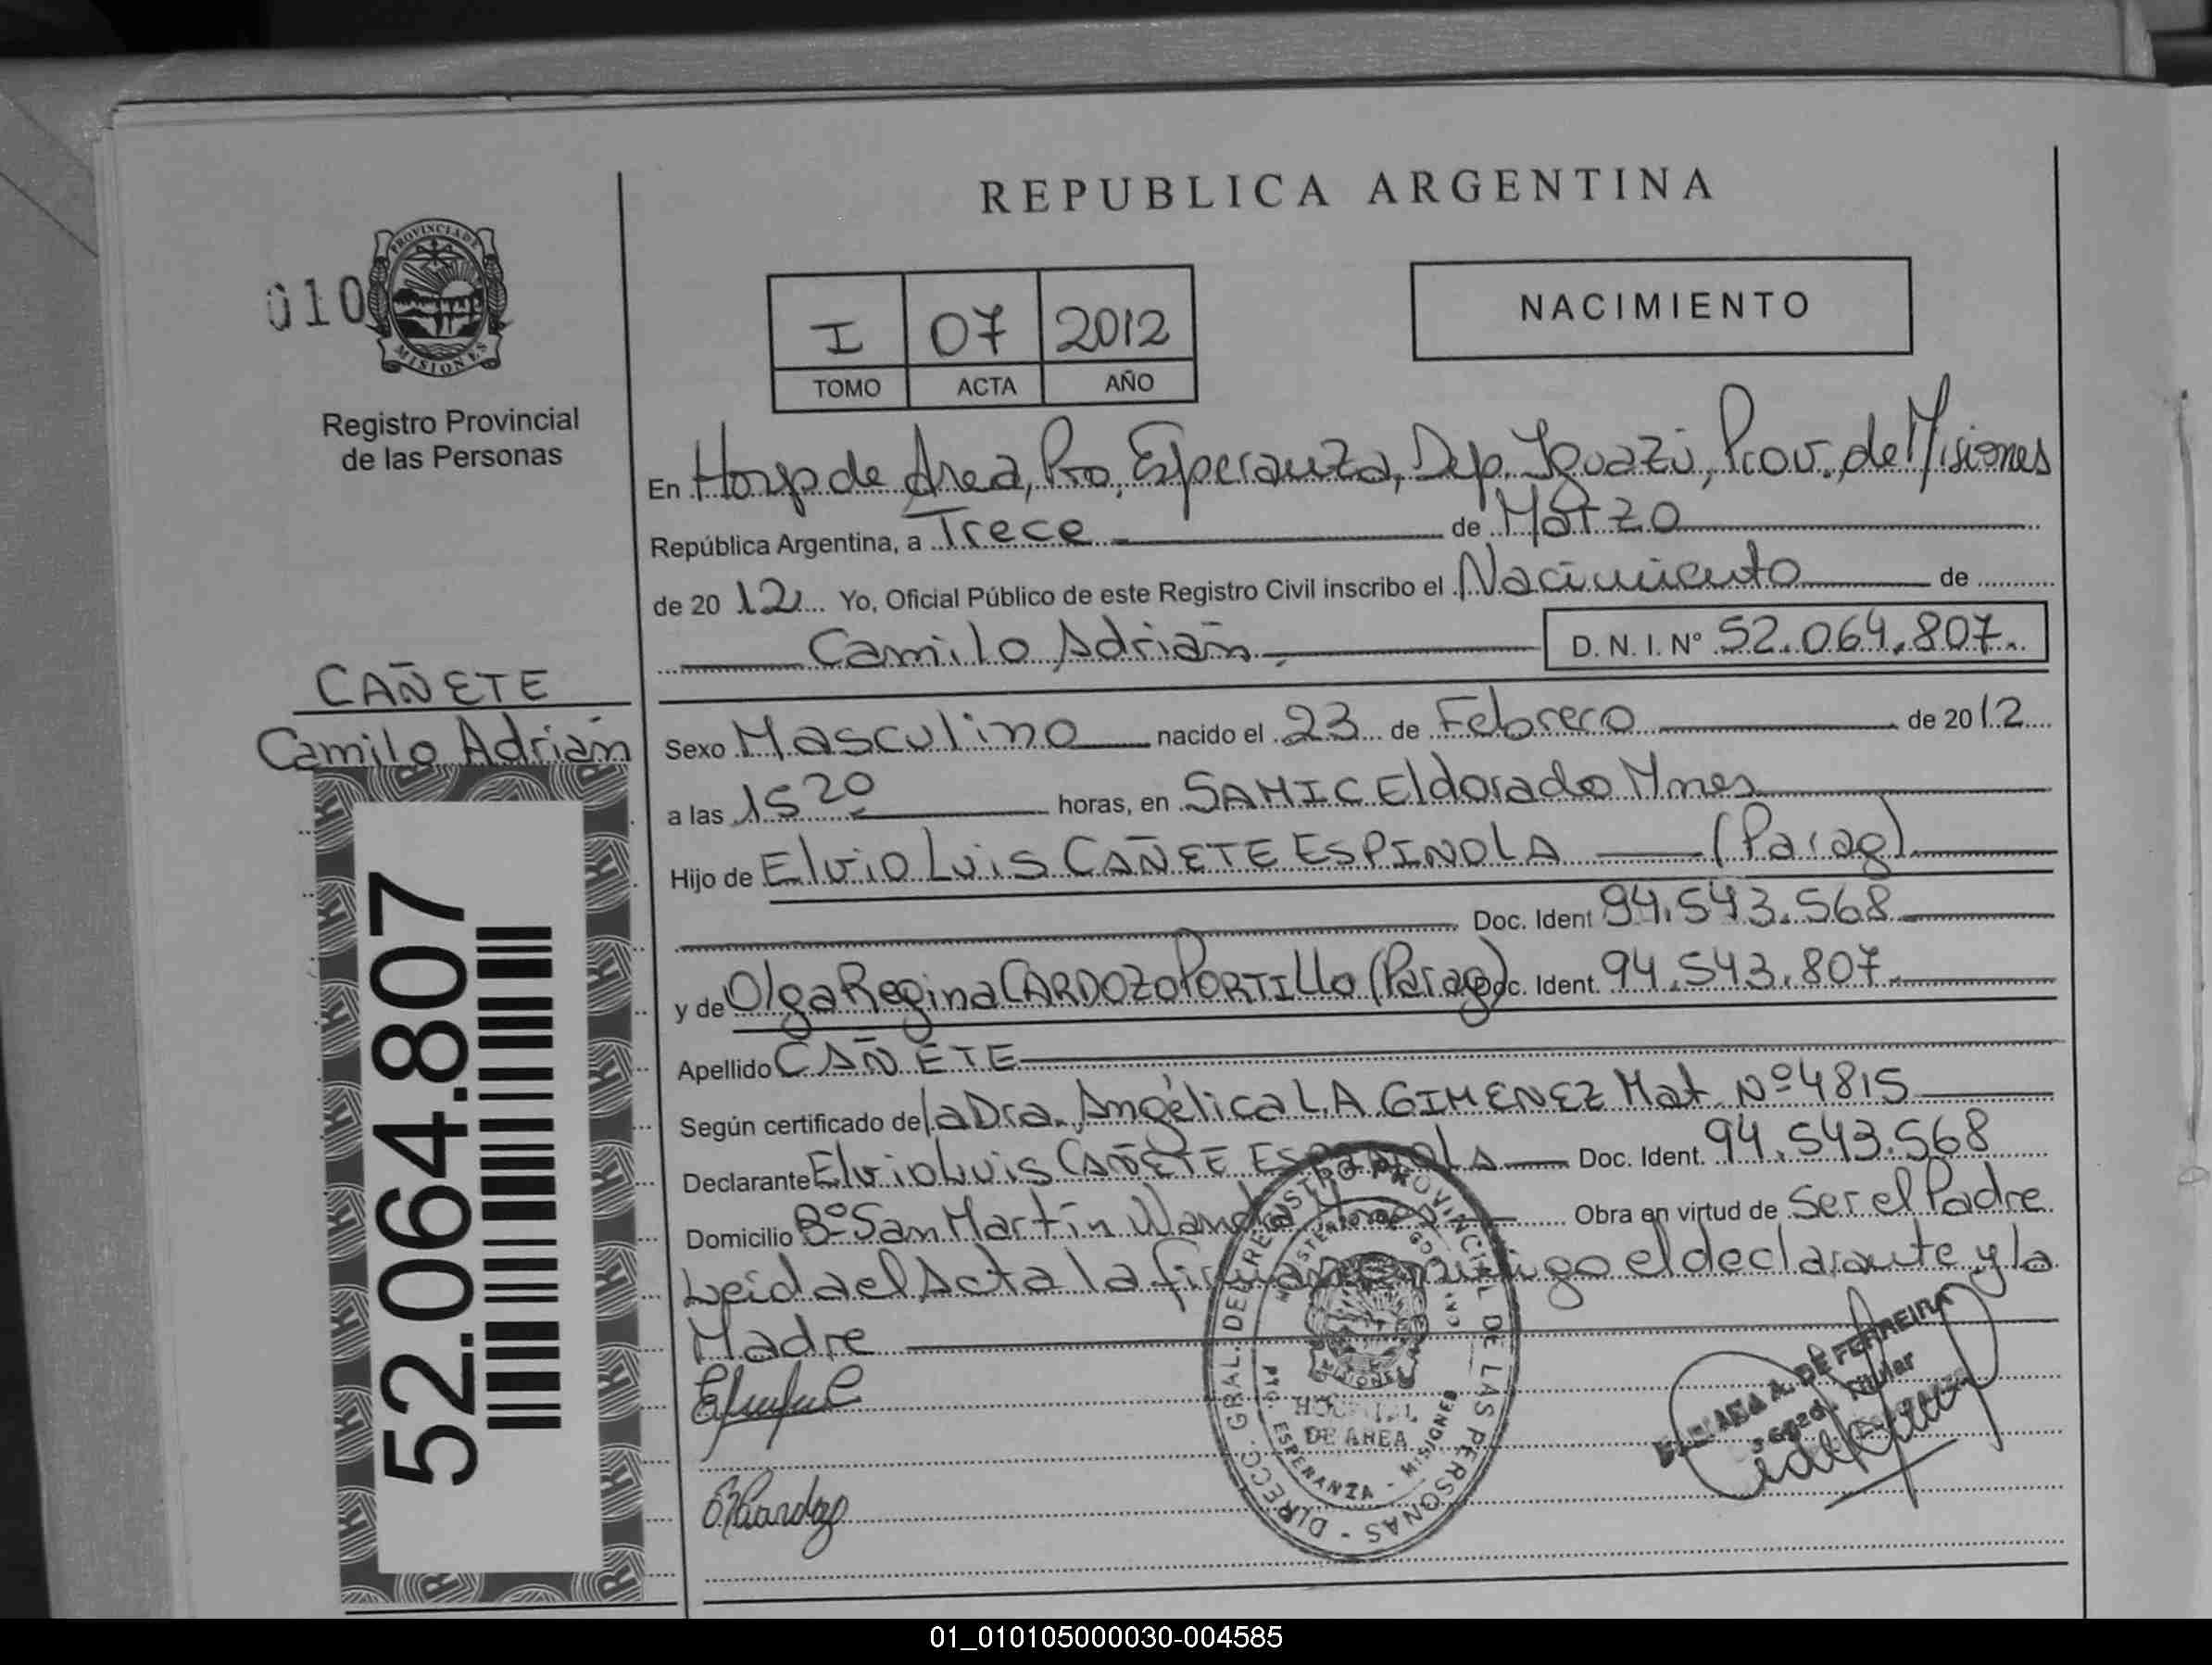 REPUBLICA ARGENTINA
010
PROVINCIA DE
MISIONES
Registro Provincial
de las Personas
I 07 2012
TOMO ACTA AÑO
NACIMIENTO
En Hosp de Area, Pto. Esperanza, Dep. Iguazú, Prov. de Misiones
República Argentina, a Trece de Marzo
de 2012 Yo, Oficial Público de este Registro Civil inscribo el Nacimiento de
Camilo Adrián. D. N. I. Nº 52.064.807.
CAÑETE
Camilo Adrián
Sexo Masculino nacido el 23 de Febrero de 2012
a las 15 20 horas, en SAMIC Eldorado Mnes
Hijo de Elvio Luis CAÑETE ESPINOLA (Parag)
Doc. Ident 94.543.568
y de Olga Regina CARDOZO PORTILLO (Parag) Doc. Ident. 94.543.807.
Apellido CAÑETE
Según certificado de la Dra. Angélica L.A. GIMENEZ Mat. Nº 4815
Declarante Elvio Luis CAÑETE ESPINOLA Doc. Ident. 94.543.568
Domicilio Bº San Martín Wanda Mnes Obra en virtud de Ser el Padre
Leida el Acta la firman conmigo el declarante y la
Madre
52.064.807
DIRECC. GRAL. DEL REGISTRO PROVINCIAL DE LAS PERSONAS
MINISTERIO DE GOBIERNO
HOSPITAL
DE AREA
PTO. ESPERANZA - MISIONES
A. DE FERREIRA
Titular
01_010105000030-004585